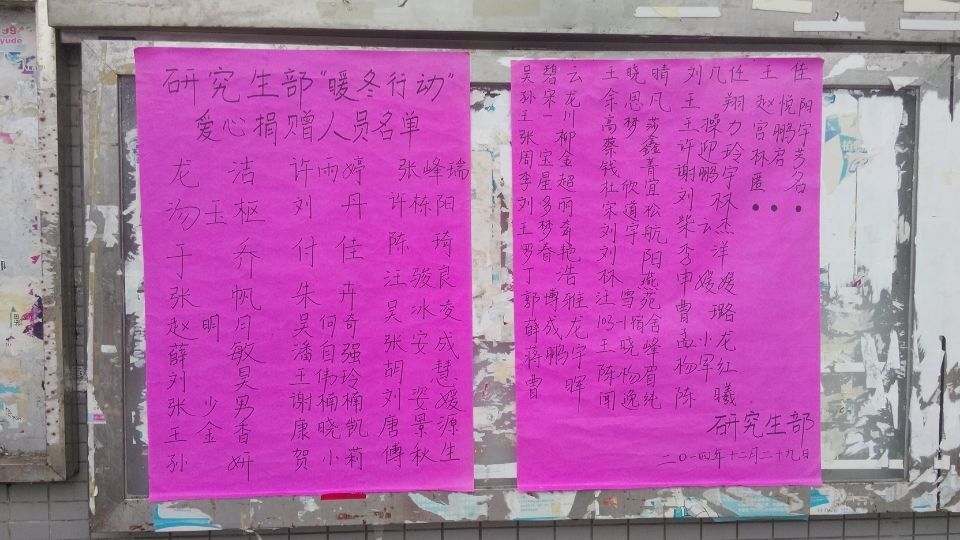 研究生部"暖冬行动"
爱心捐赠人员名单
龙洁 许雨婷 张峰瑞
汤玉枢 刘丹 许栋阳
于乔 付佳 陈琦
张帆 朱卉 汪骏良
赵明月 吴何奇 吴冰凌
薛敏 潘自强 张安成
刘昊 王伟玲 胡慧
张少男 谢楠楠 刘姿媛
王金香 康晓凯 唐景源
孙妍 贺小莉 傅秋生
吴碧云 王晓晴 刘凡 任王佳
孙宋龙 余恩凡 王翔 赵悦阳
王一川 高梦莎 王操力 宫鹏宇
张柳 蔡鑫 许迎玲 林君芳
周宝金 钱菁 谢鹏宇 匿名
季星超 杜欣宜 刘林
刘多丽 宋道松 柴云杰
王梦奔 刘宇航 李洋
罗春艳 刘阳 申媛媛
丁浩 林燕 曹璐
郭博雅 汪雪苑 孟小龙
薛成龙 103-1宿舍 杨军红
蒋鹏宇 王晓峰 陈曦
曹晖 陈杨眉
闻逸纯
研究生部
二〇一四年十二月二十九日